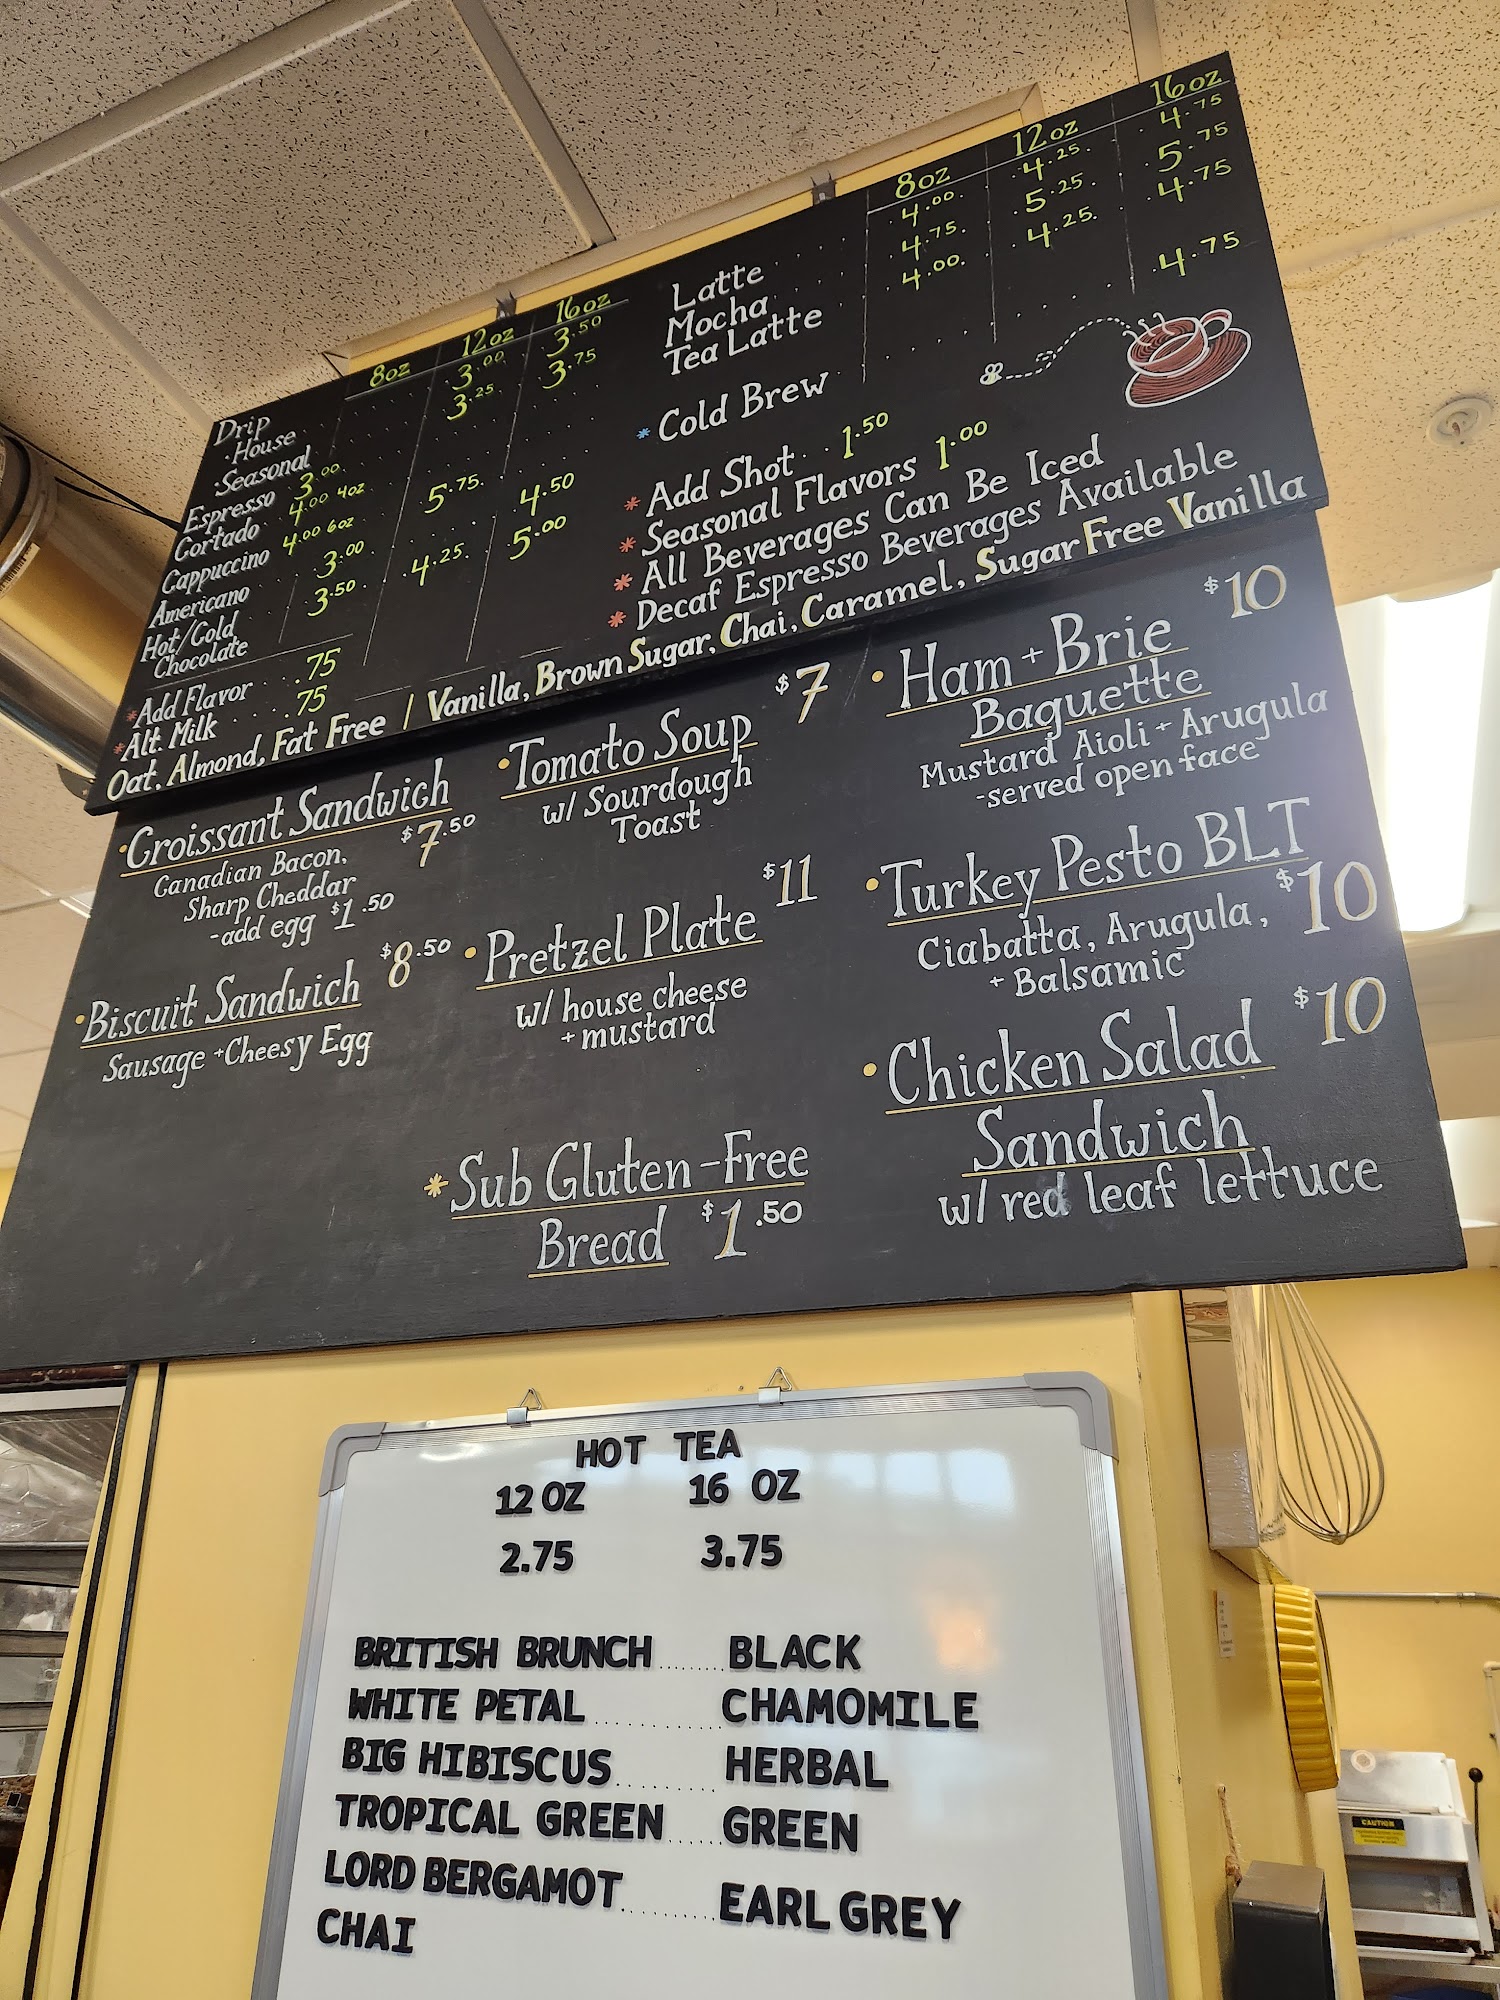 8oz 12oz 16oz
Drip
·House 3.00 3.50
·Seasonal 3.25 3.75
Espresso 3.00
Cortado 4.00 4oz
Cappuccino 4.00 6oz 5.75 
Americano 3.00 4.50
Hot/Cold Chocolate 3.50 4.25 5.00
*Add Flavor .75
*Alt. Milk .75
8oz 12oz 16oz
Latte 4.00 4.25 4.75
Mocha 4.75 5.25 5.75
Tea Latte 4.00 4.25 4.75
*Cold Brew 4.75
*Add Shot 1.50
*Seasonal Flavors 1.00
*All Beverages Can Be Iced
*Decaf Espresso Beverages Available
Oat, Almond, Fat Free / Vanilla, Brown Sugar, Chai, Caramel, Sugar Free Vanilla
·Croissant Sandwich
$7.50
Canadian Bacon,
Sharp Cheddar
-add egg $1.50
·Biscuit Sandwich $8.50
Sausage + Cheesy Egg
·Tomato Soup $7
w/ Sourdough
Toast
·Pretzel Plate $11
w/ house cheese
+ mustard
*Sub Gluten-Free
Bread $1.50
·Ham + Brie $10
Baguette
Mustard Aioli + Arugula
-served open face
·Turkey Pesto BLT
$10
Ciabatta, Arugula,
+ Balsamic
·Chicken Salad $10
Sandwich
w/ red leaf lettuce
HOT TEA
12 OZ 16 OZ
2.75 3.75
BRITISH BRUNCH........BLACK
WHITE PETAL...........CHAMOMILE
BIG HIBISCUS.........HERBAL
TROPICAL GREEN......GREEN
LORD BERGAMOT.........EARL GREY
CHAI
CAUTION